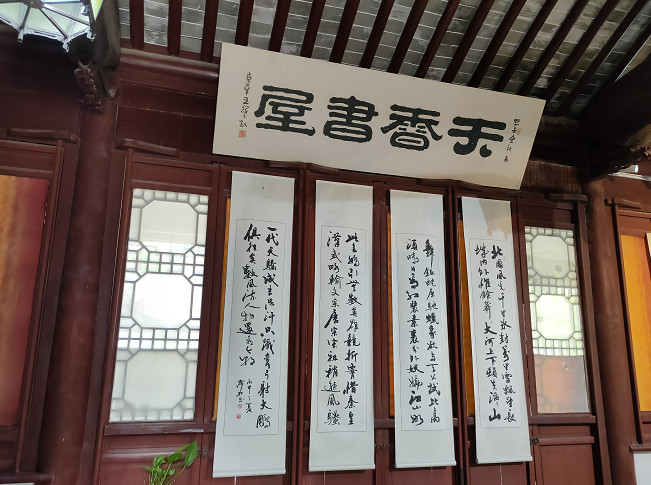 天香書屋
北國風光千里冰封萬里雪飄望長
城內外惟餘莽莽大河上下頓失滔滔山
舞銀蛇原馳蠟象欲与天公試比高
須晴日看紅裝素裹分外妖嬈江山如
此多嬌引無數英雄競折腰惜秦皇
漢武略輸文采唐宗宋祖稍遜風騷
一代天驕成吉思汗只識彎弓射大雕
俱往矣數風流人物還看今朝